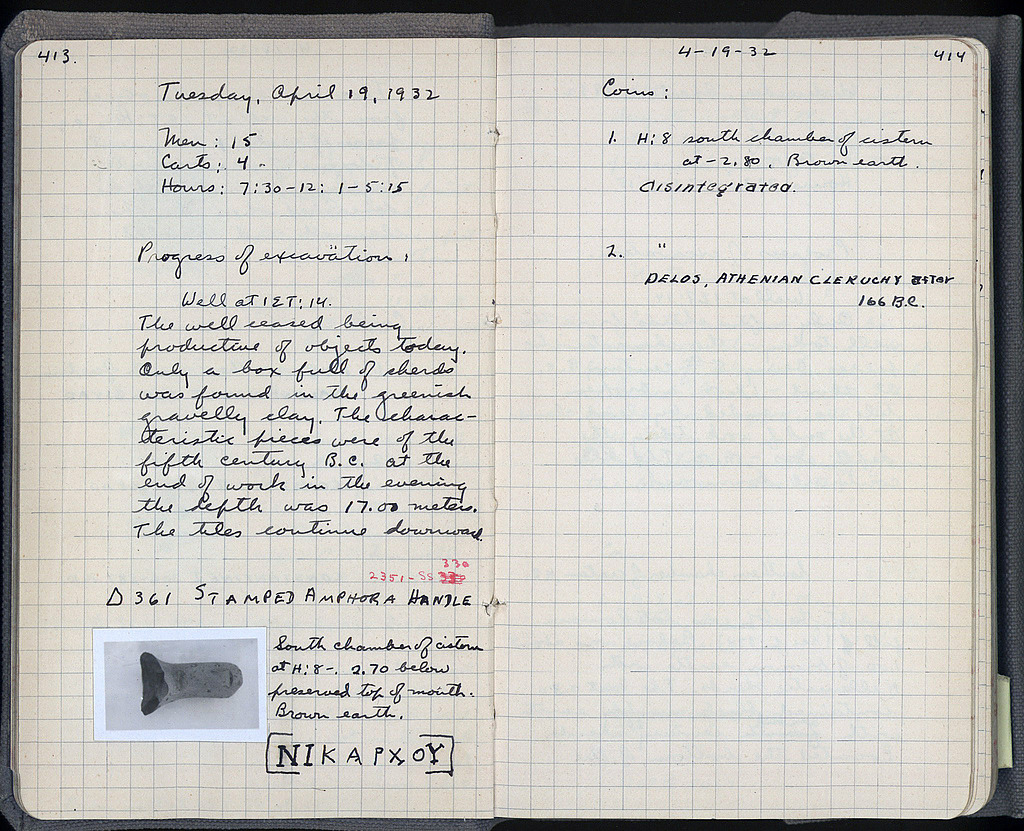 413.
Tuesday, April 19, 1932
Men: 15
Carts: 4.
Hours: 7:30-12: 1-5:15
Progress of excavation:
Well at 12T:14.
The well ceased being
productive of objects today.
Only a box full of sherds
was found in the greenish
gravelly clay. The charac-
teristic pieces were of the
fifth century B.C. at the
end of work in the evening
the depth was 17.00 meters.
The tiles continue downward.
330
2351-SS
Δ 361 STAMPED AMPHORA HANDLE
South chamber of cistern
at H:8-. 2.70 below
preserved top of mouth.
Brown earth.
[ΝΙΚΑΡΧΟΥ]
4-19-32
414
Coins:
1. H:8 south chamber of cistern
at -2.80. Brown earth.
disintegrated.
2. "
DELOS, ATHENIAN CLERUCHY after
166 B.C.